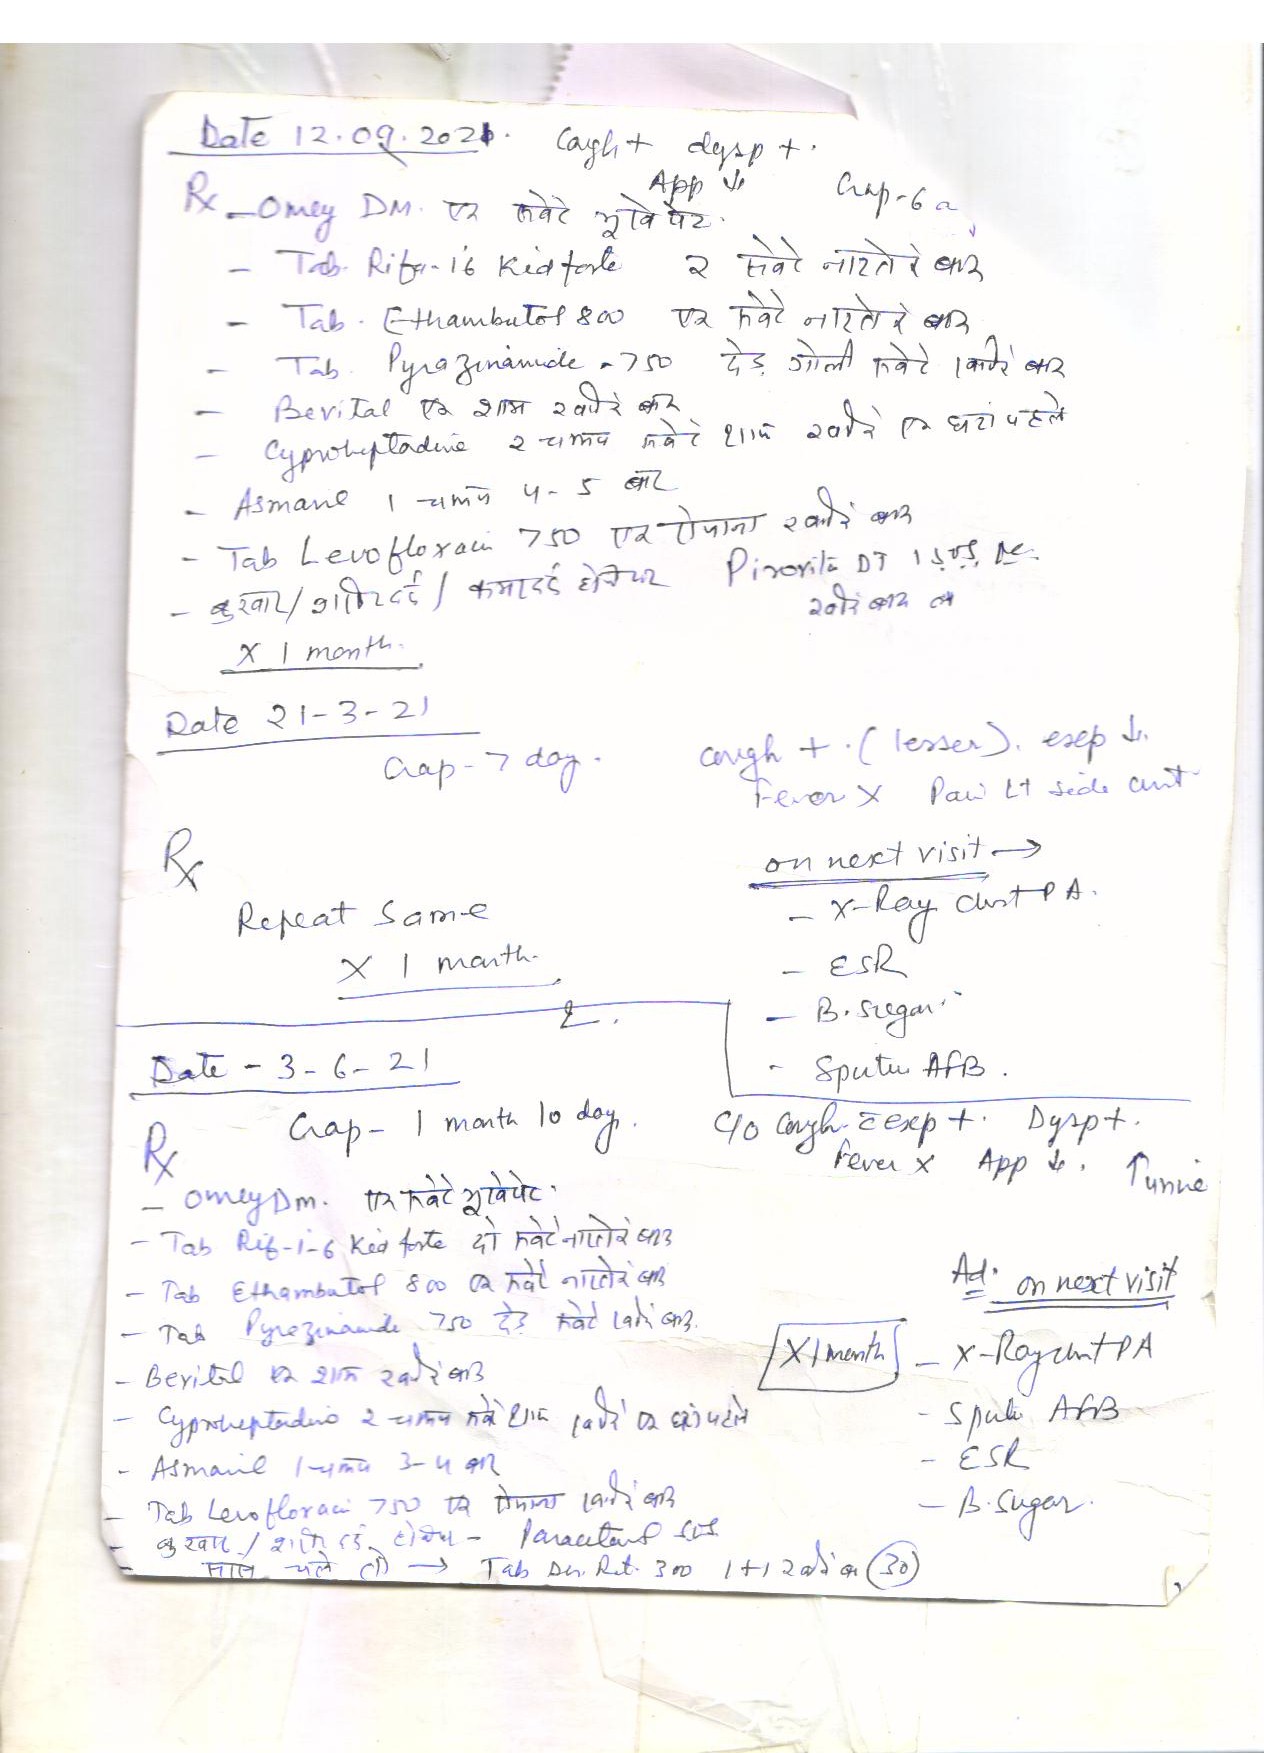 Date 12.09.2021. Cough + dysp +.
App ↓ Gap - 6
Rx - Omey DM. एक सवेरे भूखे पेट.
- Tab. Rifa-i6 Kid forte २ सवेरे नाश्ते के बाद
- Tab. Ethambutol 800 एक सवेरे नाश्ते के बाद
- Tab. Pyrazinamide - 750 देड़ गोली सवेरे खाने के बाद
- Bevital एक शाम खाने के बाद
- Cyproheptadine २ चम्मच सवेरे शाम खाने के एक घंटा पहले
- Asmanil 1 चम्मच 4-5 बार
- Tab Levofloxacin 750 एक रोजाना खाने के बाद
- बुखार/शरीर दर्द/कमर दर्द होने पर DT
खाने के बाद
x 1 month.
Date 21-3-21
Gap - 7 day. cough + (lesser). exp ↓.
Fever X Pain Lt side chest
Rx
Repeat Same
x 1 month.
on next visit →
- X-Ray chest PA.
- ESR
- B. Sugar
- Sputum AFB.
Date - 3-6-21
Gap - 1 month 10 day. C/o Cough c̄ exp +. Dysp +.
Fever X App ↓. ↑urine
Rx
- Omey Dm. एक सवेरे भूखे पेट.
- Tab Rif-i-6 Kid forte दो सवेरे नाश्ते के बाद
- Tab Ethambutol 800 एक सवेरे नाश्ते के बाद
- Tab Pyrazinamide 750 देड़ सवेरे खाने के बाद
- Bevital एक शाम खाने के बाद
- Cyproheptadine 2 चम्मच सवेरे शाम खाने के एक घंटा पहले
- Asmanil 1 चम्मच 3-4 बार
- Tab Levofloxacin 750 एक रोजाना खाने के बाद
- बुखार/शरीर दर्द होने पर - Paracetamol SOS
- सांस चले तो → Tab Der. Ret. 300 1+1 खाने के बाद (30)
x 1 month
Ad. on next visit
- X-Ray chest PA
- Sputum AFB
- ESR
- B. Sugar.